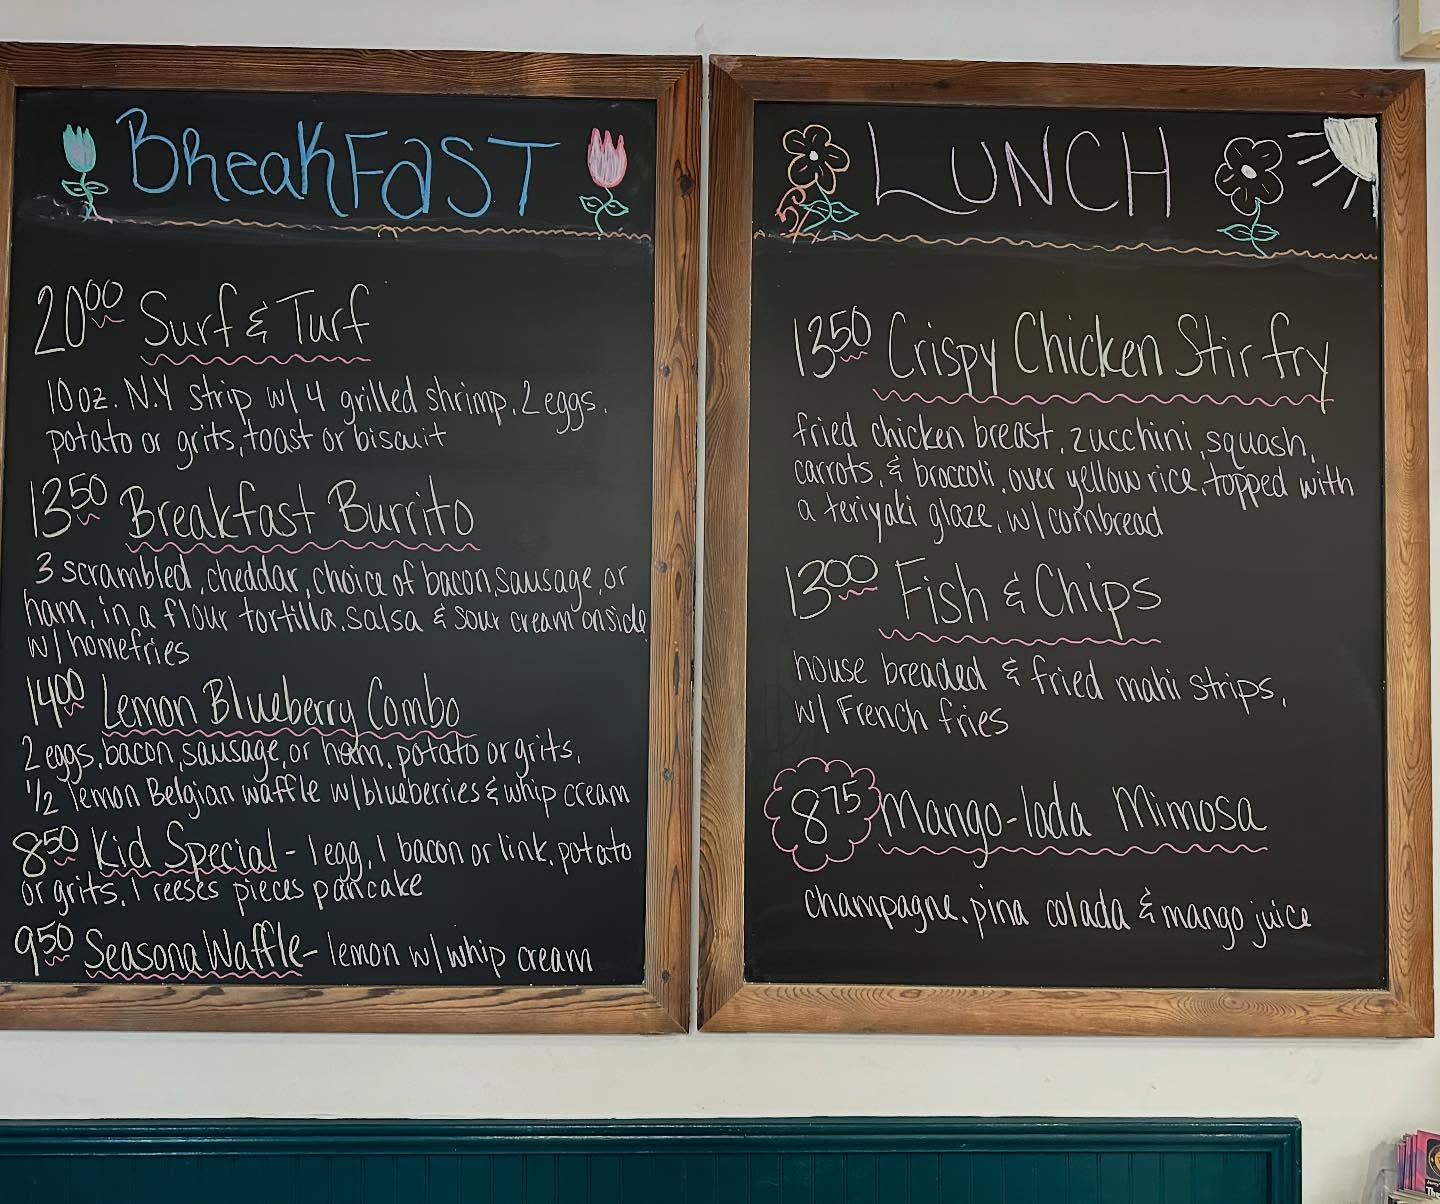 BreakFaST
20.00 Surf & Turf
10 oz. N.Y strip w/ 4 grilled shrimp, 2 eggs,
potato or grits, toast or biscuit
13.50 Breakfast Burrito
3 scrambled, cheddar, choice of bacon, sausage, or
ham, in a flour tortilla. salsa & sour cream onside
w/ homefries
14.00 Lemon Blueberry Combo
2 eggs, bacon, sausage, or ham, potato or grits,
1/2 lemon Belgian waffle w/ blueberries & whip cream
8.50 Kid Special - 1 egg, 1 bacon or link, potato
or grits, 1 reeses pieces pancake
9.50 Seasona Waffle - lemon w/ whip cream
LUNCH
13.50 Crispy Chicken Stir fry
fried chicken breast, zucchini, squash,
carrots, & broccoli, over yellow rice, topped with
a teriyaki glaze, w/ cornbread
13.00 Fish & Chips
house breaded & fried mahi strips,
w/ French fries
8.75 Mango-lada Mimosa
champagne, pina colada & mango juice